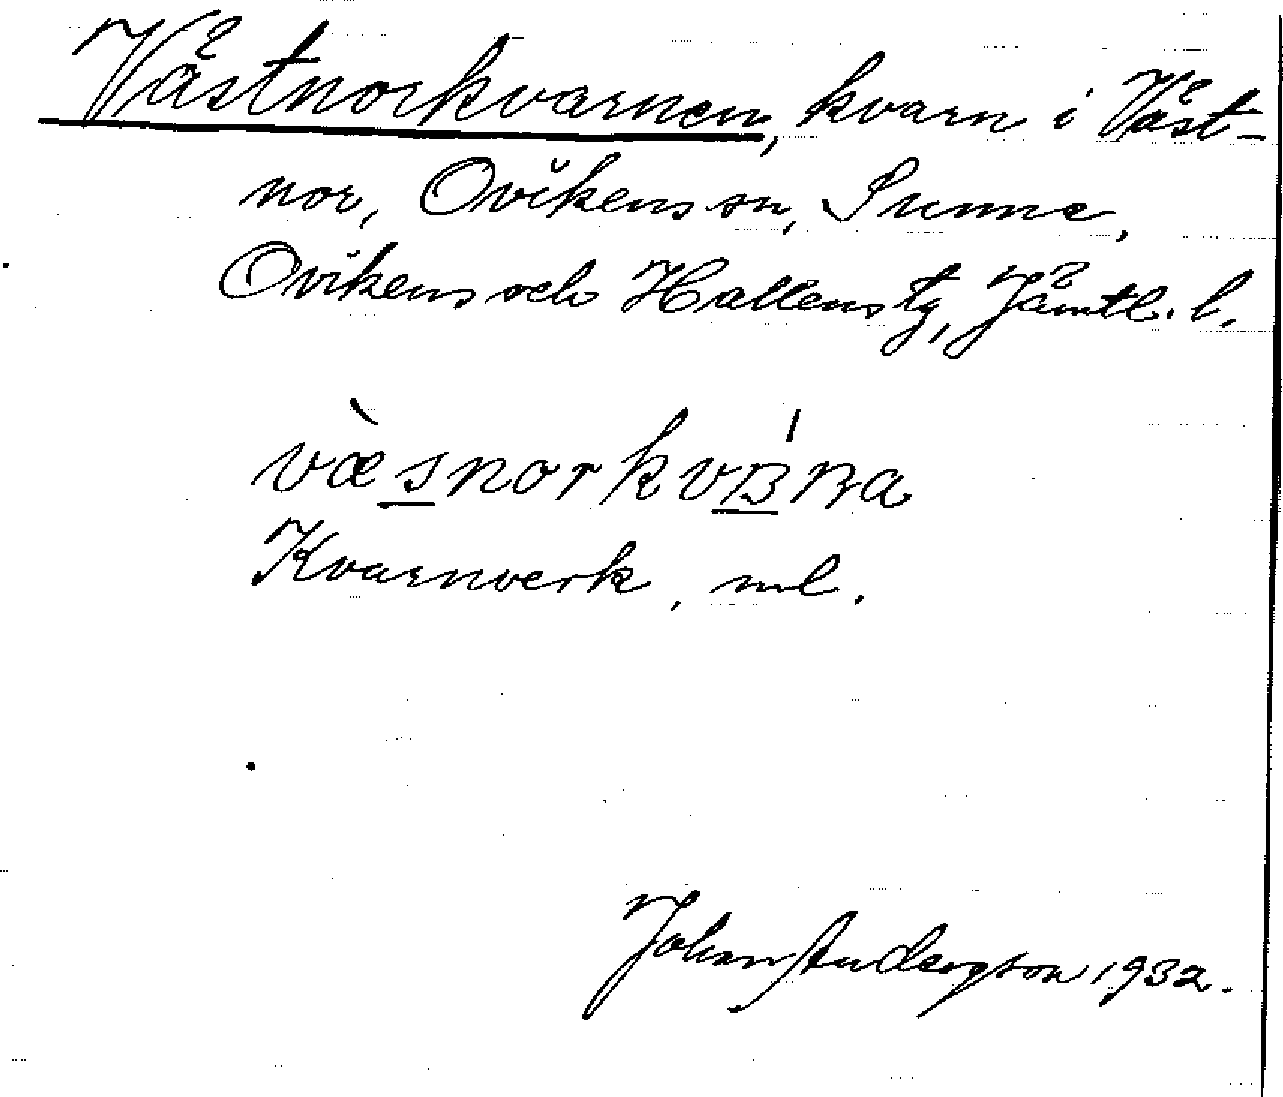 Västnorkvarnen, kvarn i Väst-
nor, Ovikens sn, Sunne,
Ovikens och Hallens tg, Jämtl. l.
væ̀snorkvʙ́ɴa
Kvarnverk, ml.
Johan Anderzson 1932.